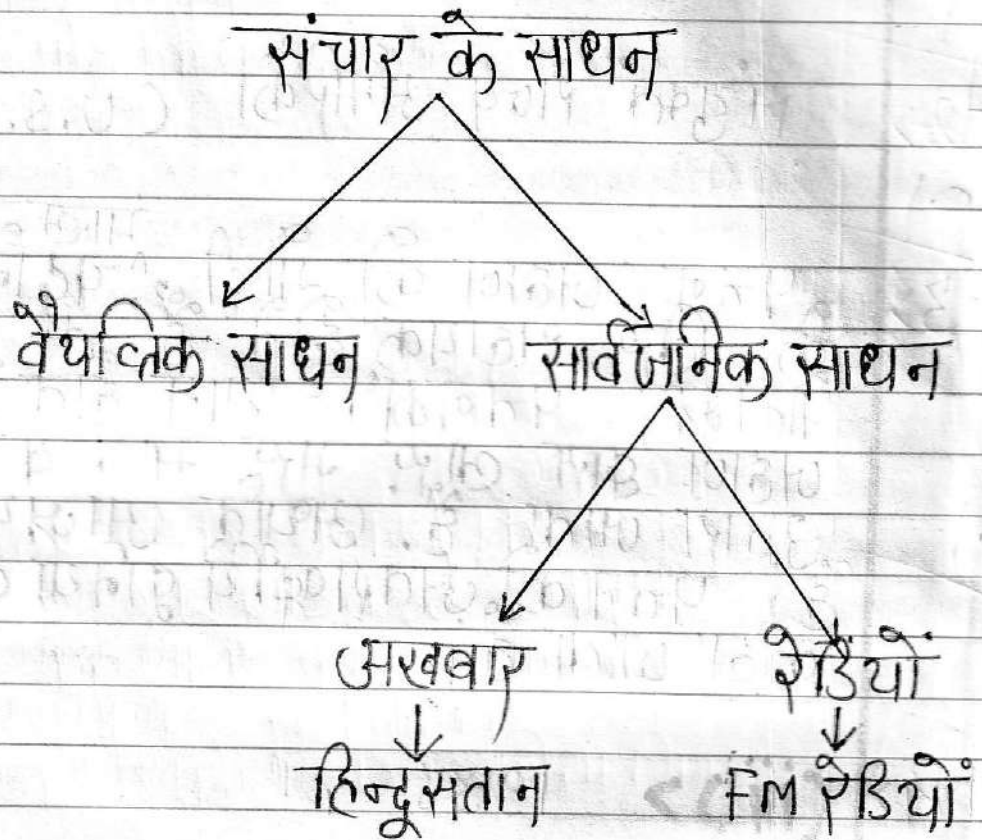 संचार के साधन
वैयक्तिक साधन सार्वजनिक साधन
अखबार रेडियों
हिन्दुसतान FM रेडियों